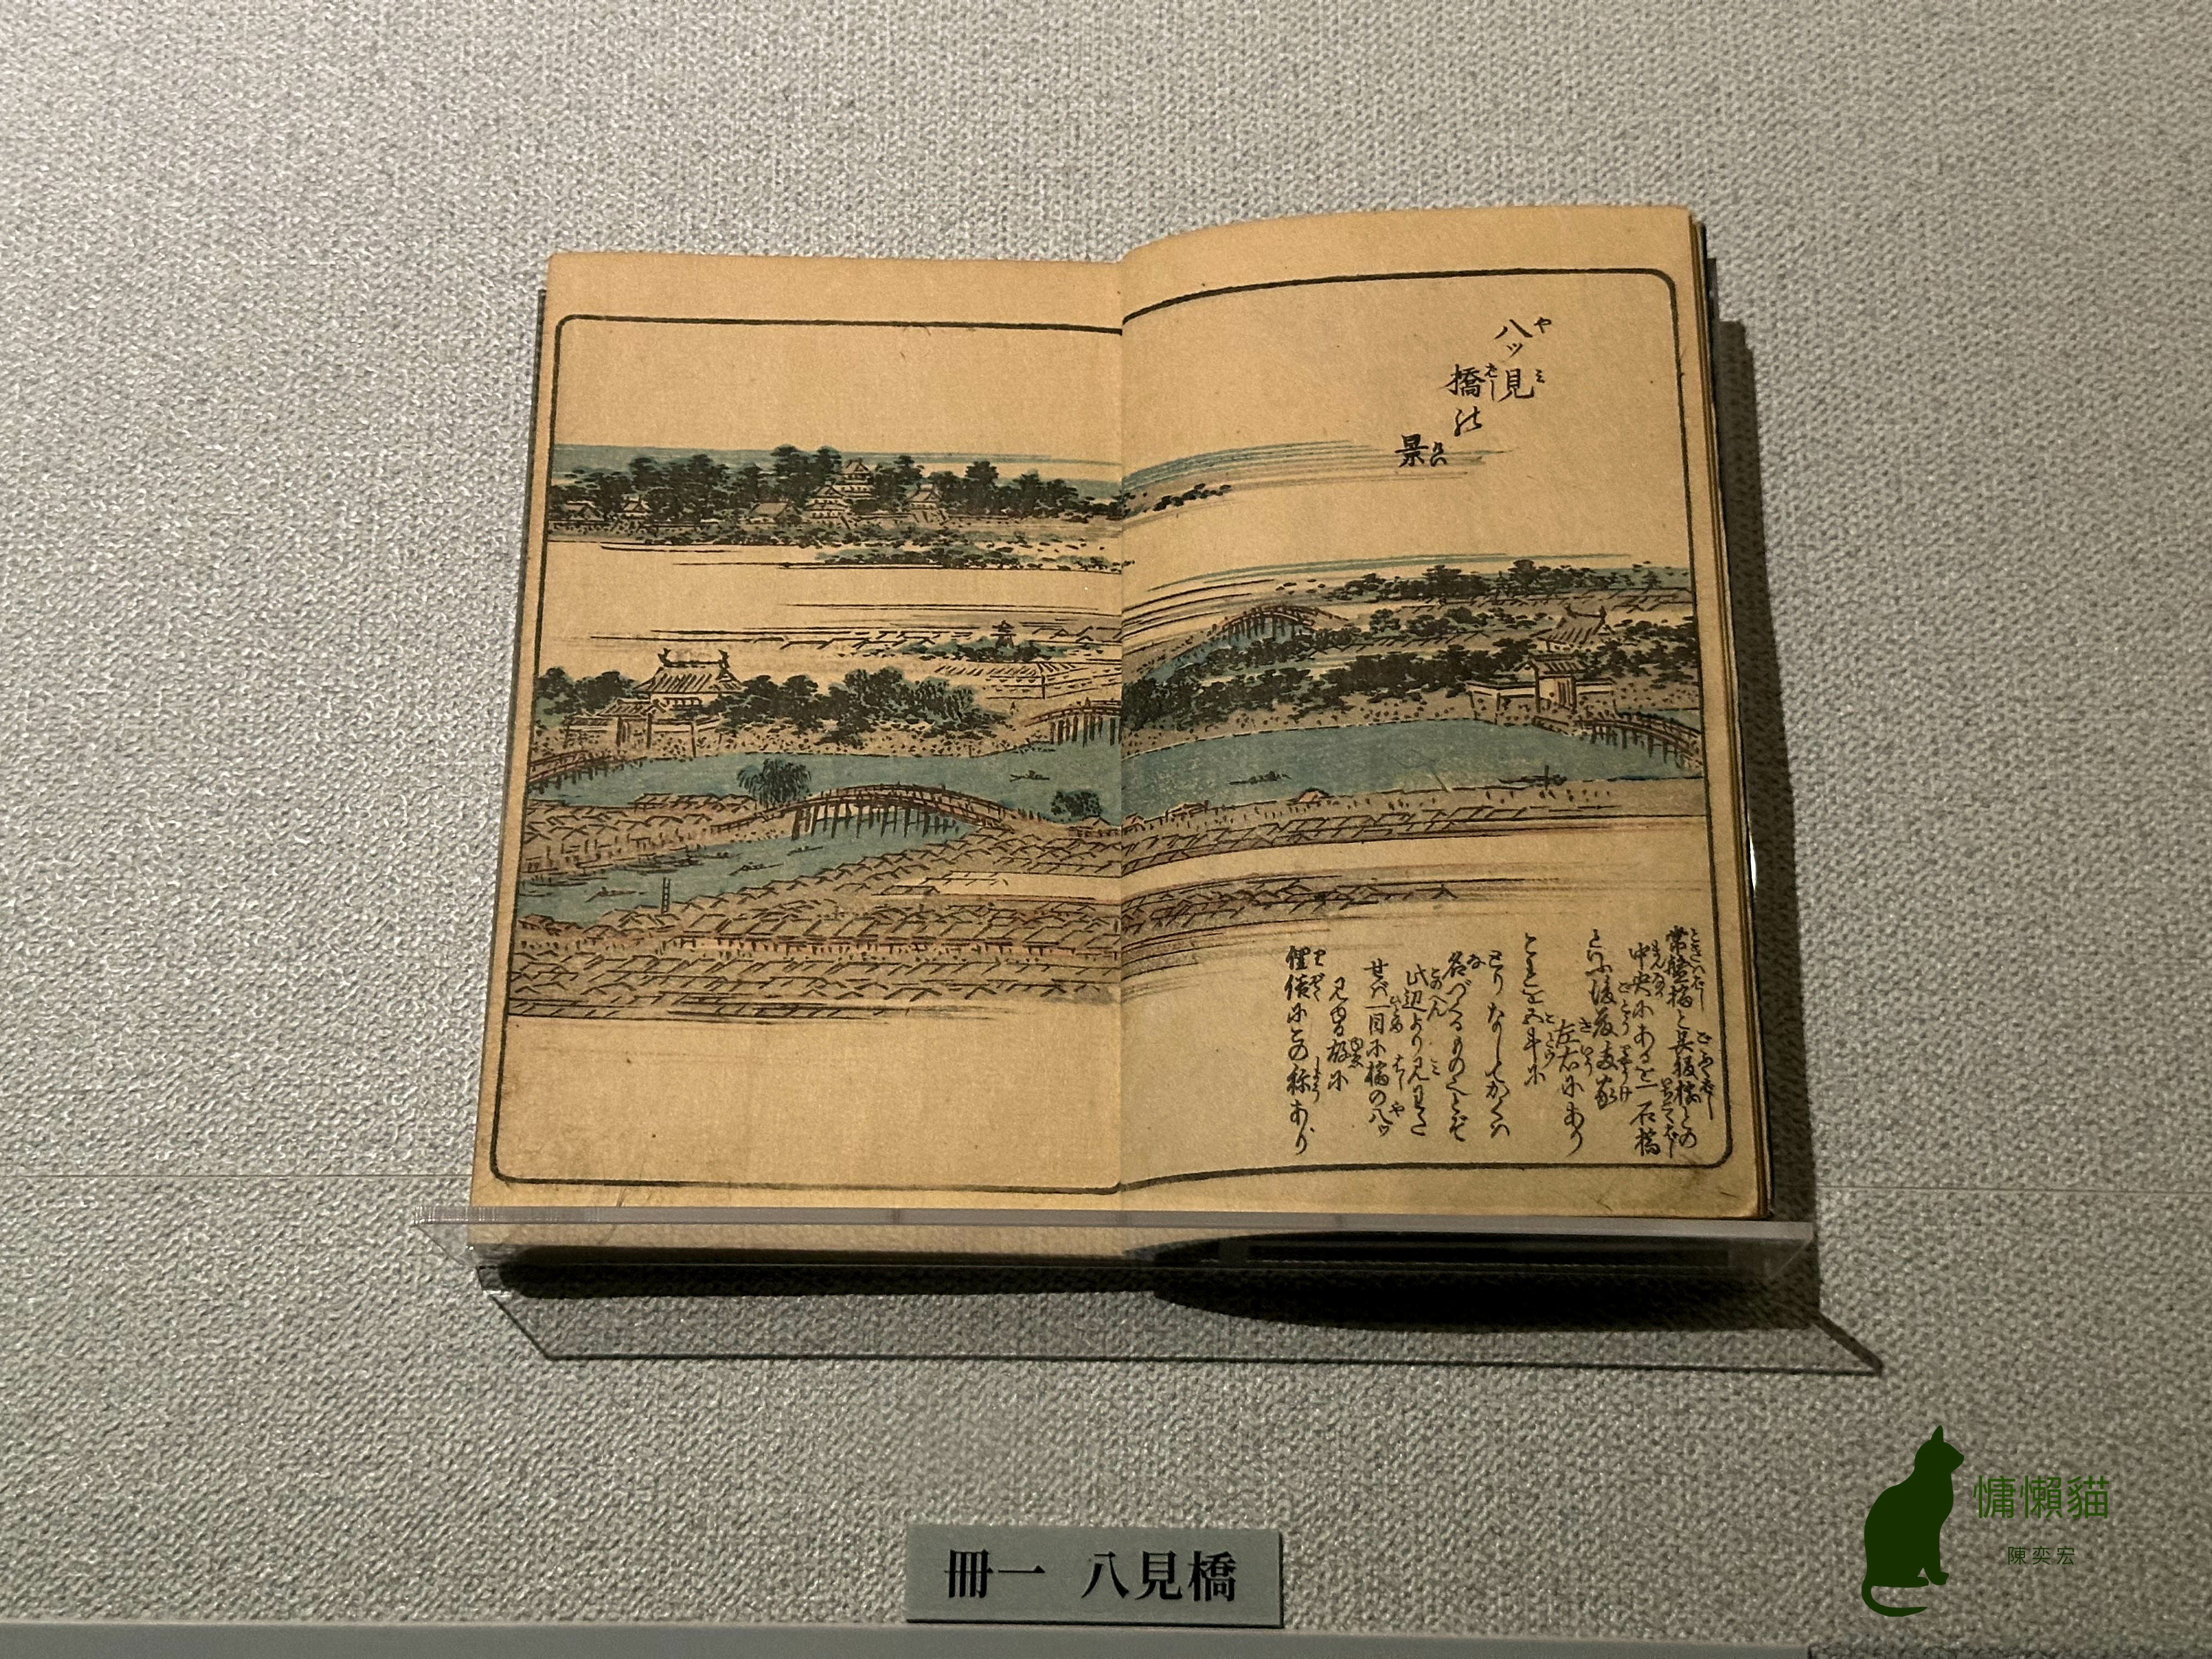 八ッ見
橋の
景
常盤橋と呉服橋との
中央にあるを一石橋
といふ後藤両家
左右にあり
これを五斗に
とりなしてかくは
名づくるものとぞ
此辺より見わた
せば一目に橋の八ッ
見ゆる故に
俚俗にこの称あり
冊一 八見橋
慵懶貓
陳奕宏